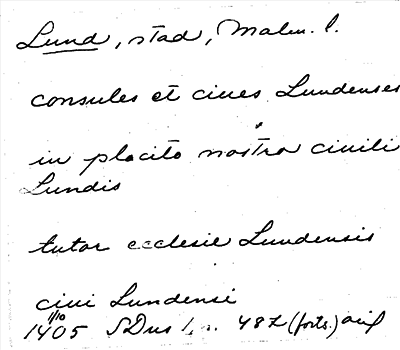 Lund, stad, Malm. l.
consules et ciues Lundenses
in placito nostro ciuili
Lundis
tutor ecclesie Lundensis
ciui Lundensi
1/10
1405 SDns 1, s. 487 (forts.)